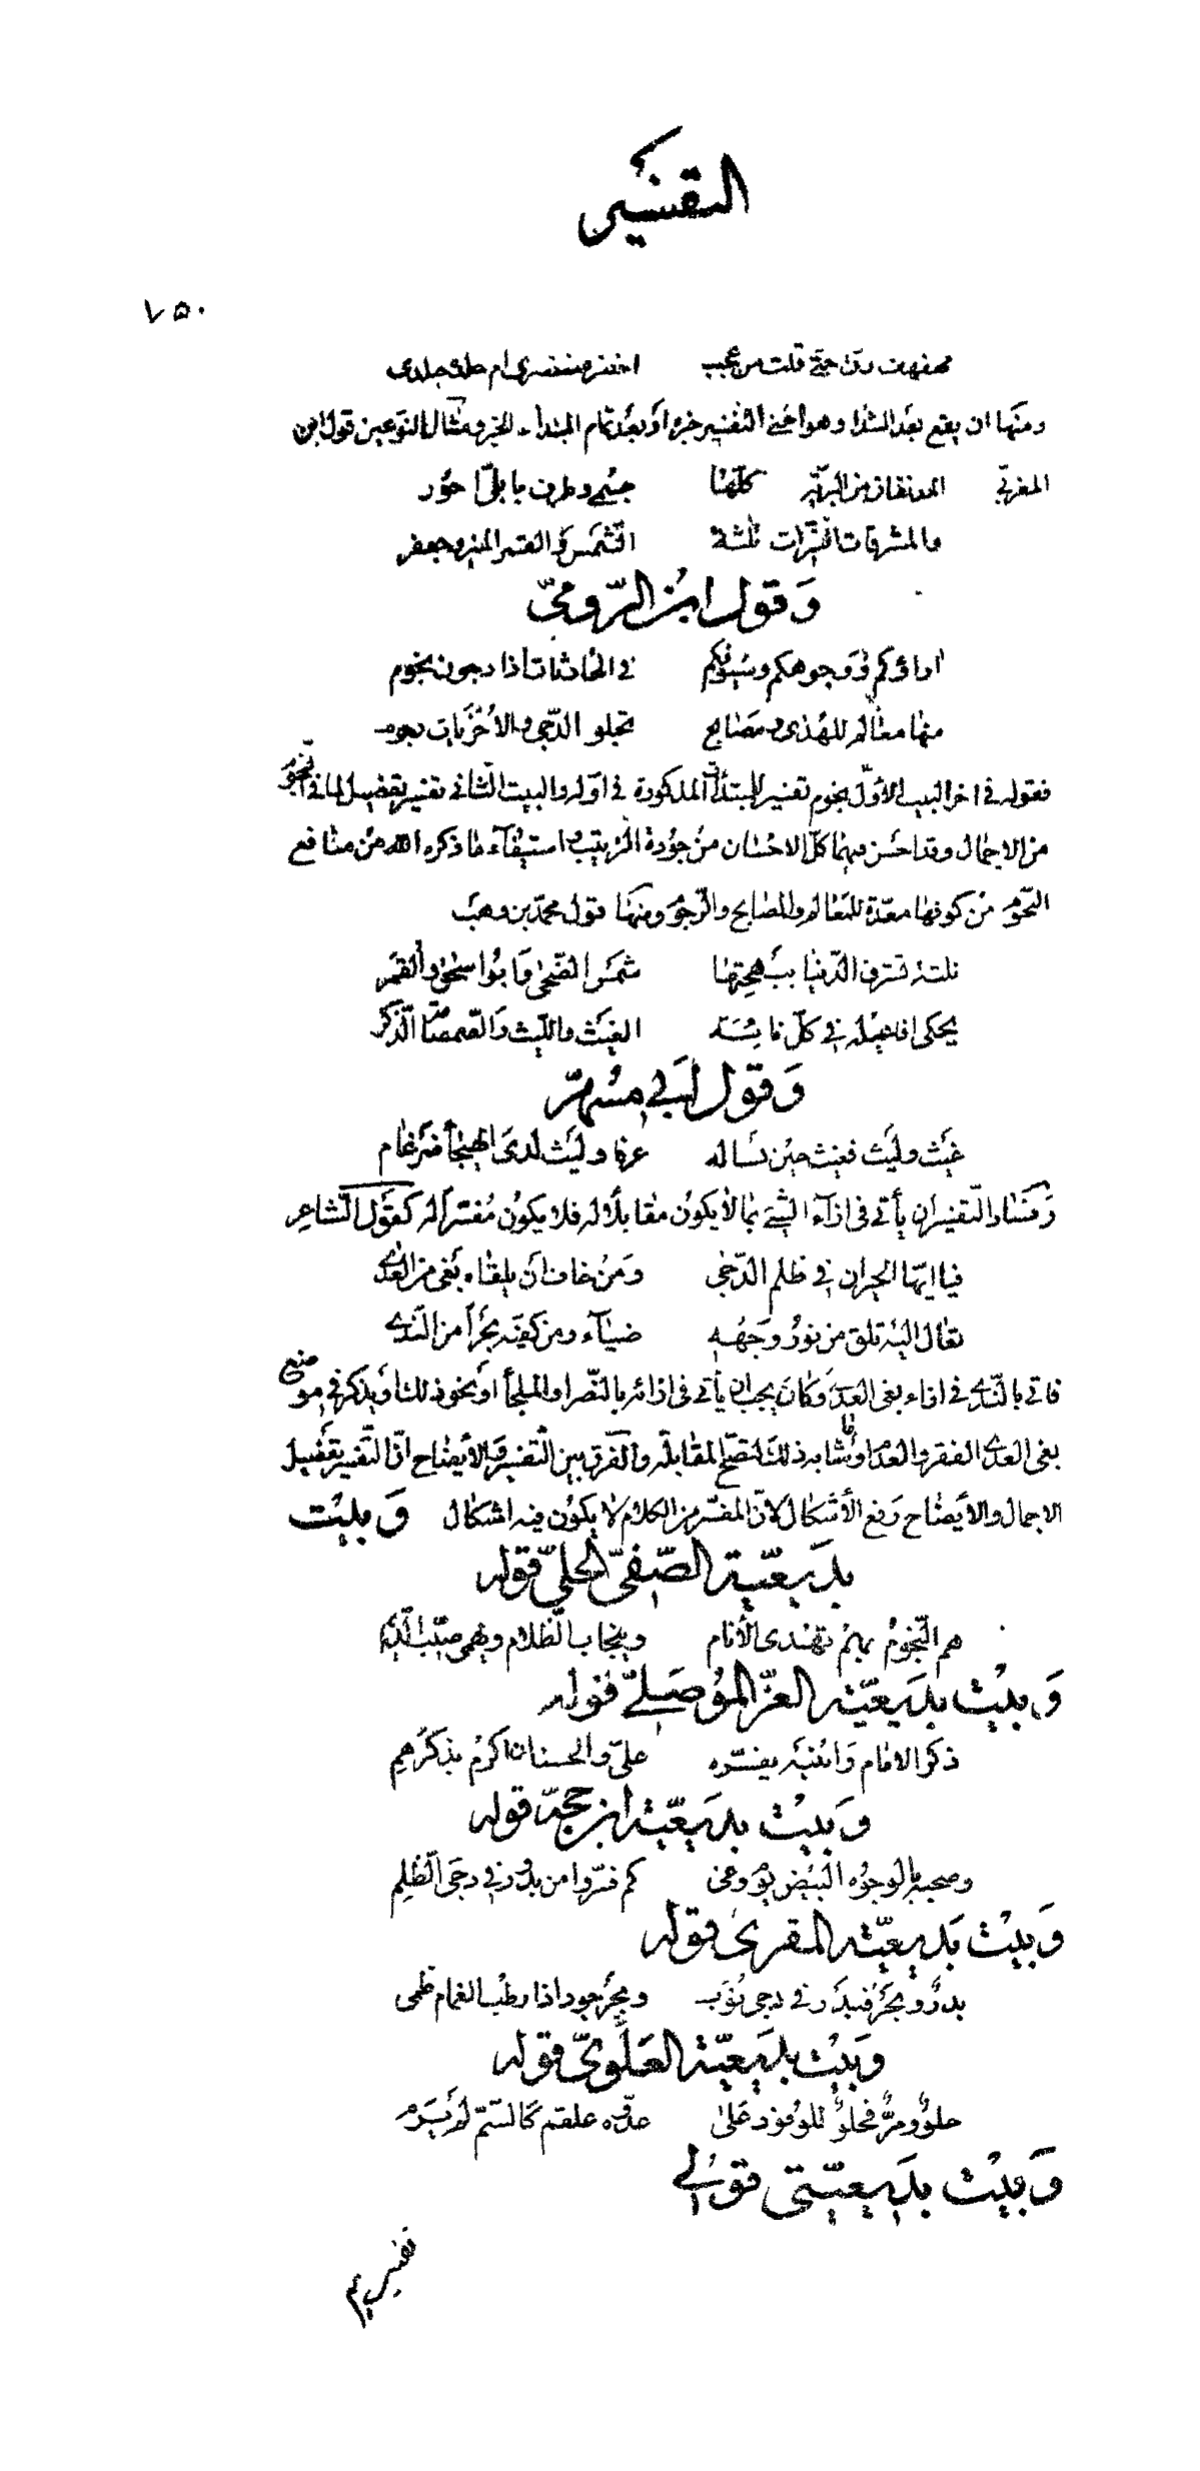 التفسير
٧٥٠
مهفهف رق حتى قلت من عجب اخنصره خنصري ام جلده جلدي
ومنها ان يقع بعد المبتدا وهو احنى التفسير خبره او بعد تمام المبتداء الخبر ومثال النوعين قول ابن
المغربي المدنفان من البرية كلها جسمي وطرف بابلي احور
والمشرقات النيرات ثلثة الشمس والقمر المنير وجعفر
وقول ابن الرومي
اراؤكم ووجوهكم وسيوفكم في الحادثات اذا دجون نجوم
منها معالم للهدى ومصابح تجلو الدجى والاخريات رجوم
فقوله في اخر البيت الاول نجوم تفسير للمبتدات المذكورة في اوله والبيت الثاني تفسير بتفصيل لما في النجوم
من الاجمال وقد احسن فيهما كل الاحسان من جودة الترتيب واستيفاء ما ذكره الله من منافع
النجوم من كونها معدة للمعالم والمصابح والرجوم ومنها قول محمد بن وهب
ثلثة تشرق الدنيا ببهجتها شمس الضحى وابو اسحق والقمر
يحكى افاعيله في كل نائبة الغيث والليث والصمصامة الذكر
وقول ابي مسهر
غيث وليث فغيث حين تساله عرفا وليث لدى الهيجاء ضرغام
وفساد التفسير ان يأتي في ازاء الشيء بما لا يكون مقابلا له فلا يكون مفسرا له كقول الشاعر
فيا ايها الحيران في ظلم الدجى ومن خاف ان يلقاه بغي من العدى
تعال اليه تلق من نور وجهه ضياء ومن كفيه بحرا من الندى
فاتى بالندى في ازاء بغي العدى وكان يجب ان يأتي في ازائه بالنصر او الملجأ او نحو ذلك او يذكر في موضع
بغي العدى الفقر والعدم او ما شابه ذلك لتصح المقابلة والفرق بين التفسير والايضاح ان التفسير تفصيل
الاجمال والايضاح رفع الاشكال لان المفسر من الكلام لا يكون فيه اشكال وبيت
بديعية الصفي الحلي قوله
هم النجوم بهم تهتدى الانام وينجاب الظلام ويهمى صيب الديم
وبيت بديعية العز الموصلي قوله
ذكر الامام وابنيه يفسره علي والحسنان اكرم بذكرهم
وبيت بديعية ابن حجة قوله
وصحبه بالوجوه البيض يوم وغى كم فسروا من بدور في دجى الظلم
وبيت بديعية المقري قوله
بدر وبحر فبدر في دجى نوب وبحر جود اذا رطب الغمام ظمى
وبيت بديعية العلوي قوله
حلو ومر فحلو للوفود على عدوه علقم كالسم لم يرم
وبيت بديعيتي قولي
تفسيرهم